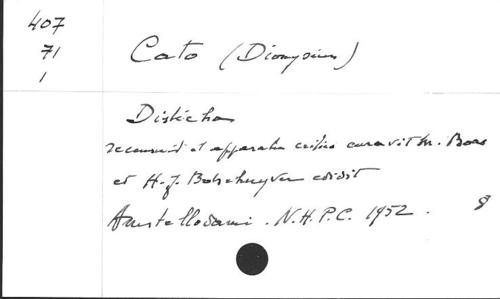 407
71
1
Cato (Dionysius)
Disticha
recensuit et apparatu critico curavit M. Boas
et H. J. Botschuyver edidit
Amstellodami. N.H.P.C. 1952. 8